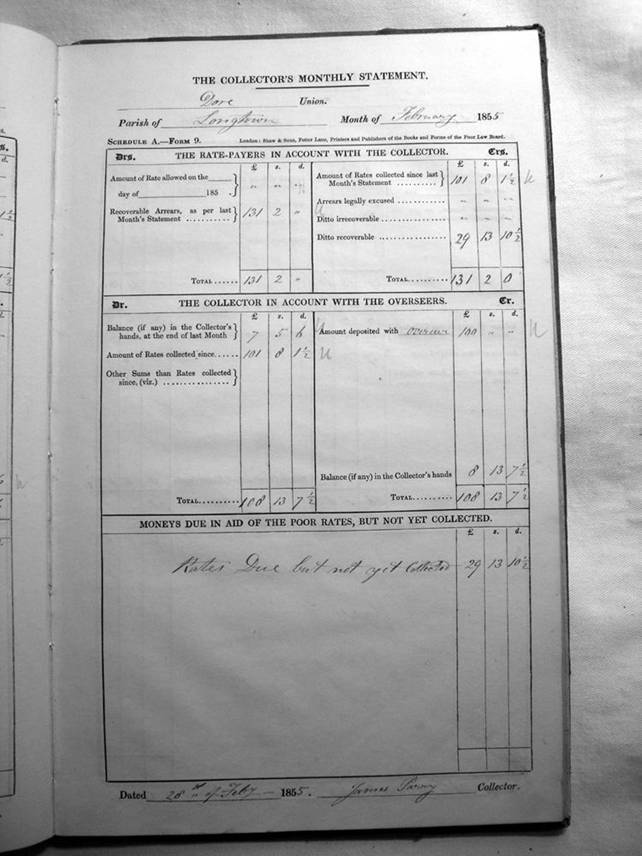 THE COLLECTOR'S MONTHLY STATEMENT.
Dore Union.
Parish of Longtown Month of February 1855
SCHEDULE A.—FORM 9. London: Shaw & Sons, Fetter Lane, Printers and Publishers of the Books and Forms of the Poor Law Board.
Drs. THE RATE-PAYERS IN ACCOUNT WITH THE COLLECTOR. Crs.
£ s. d. £ s. d.
Amount of Rate allowed on the
day of 185 . " " "
Amount of Rates collected since last
Month's Statement .......... 101 8 1½
Arrears legally excused ............ " " "
Recoverable Arrears, as per last
Month's Statement ........... 131 2 "
Ditto irrecoverable .................. " " "
Ditto recoverable .................. 29 13 10½
TOTAL ...... 131 2 " TOTAL ...... 131 2 0
Dr. THE COLLECTOR IN ACCOUNT WITH THE OVERSEERS. Cr.
£ s. d. £ s. d.
Balance (if any) in the Collector's
hands, at the end of last Month 7 5 6
Amount deposited with overseer 100 " "
Amount of Rates collected since...... 101 8 1½
Other Sums than Rates collected
since, (viz.) ..................
Balance (if any) in the Collector's hands 8 13 7½
TOTAL.......... 108 13 7½ TOTAL.......... 108 13 7½
MONEYS DUE IN AID OF THE POOR RATES, BUT NOT YET COLLECTED.
£ s. d.
Rates Due but not yet Collected 29 13 10½
Dated 28th of Feby 1855. James Collector.